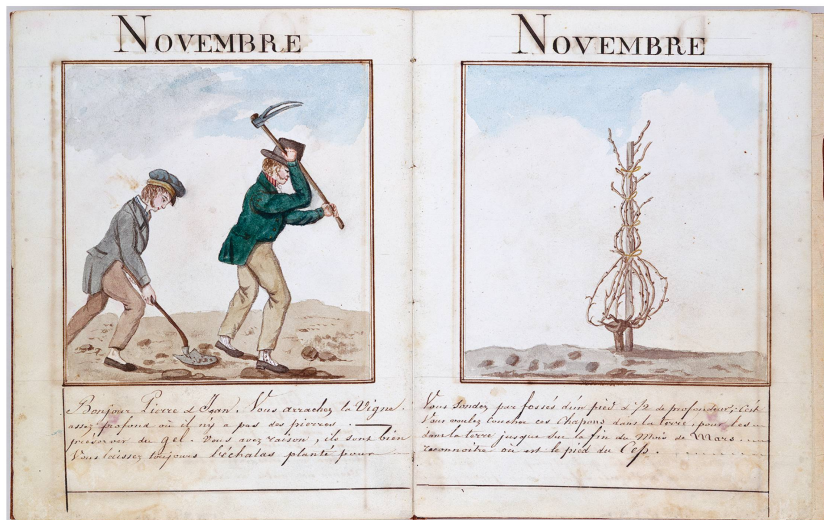 NOVEMBRE
Bonjour Pierre & Jean. Vous arrachez la Vigne.
assez profond où il n'y a pas des pierres.
préserver du gel. Vous avez raison, ils sont bien
Vous laissez toujours l'échalas planté pour
NOVEMBRE
Vous sondez par fossés d'un pied & 1/2 de profondeur; C'est
Vous voulez coucher ces chapons dans la terre pour les
dans la terre jusque sur la fin du Mois de Mars
reconnoitre où est le pied du Cep.